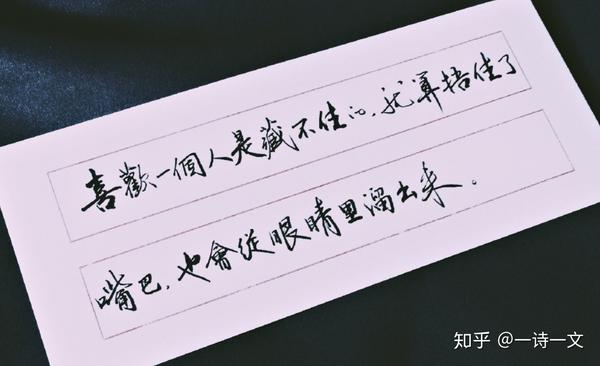 喜歡一個人是藏不住的,就算捂住了
嘴巴,也會從眼睛里溜出来。
知乎 @一诗一文